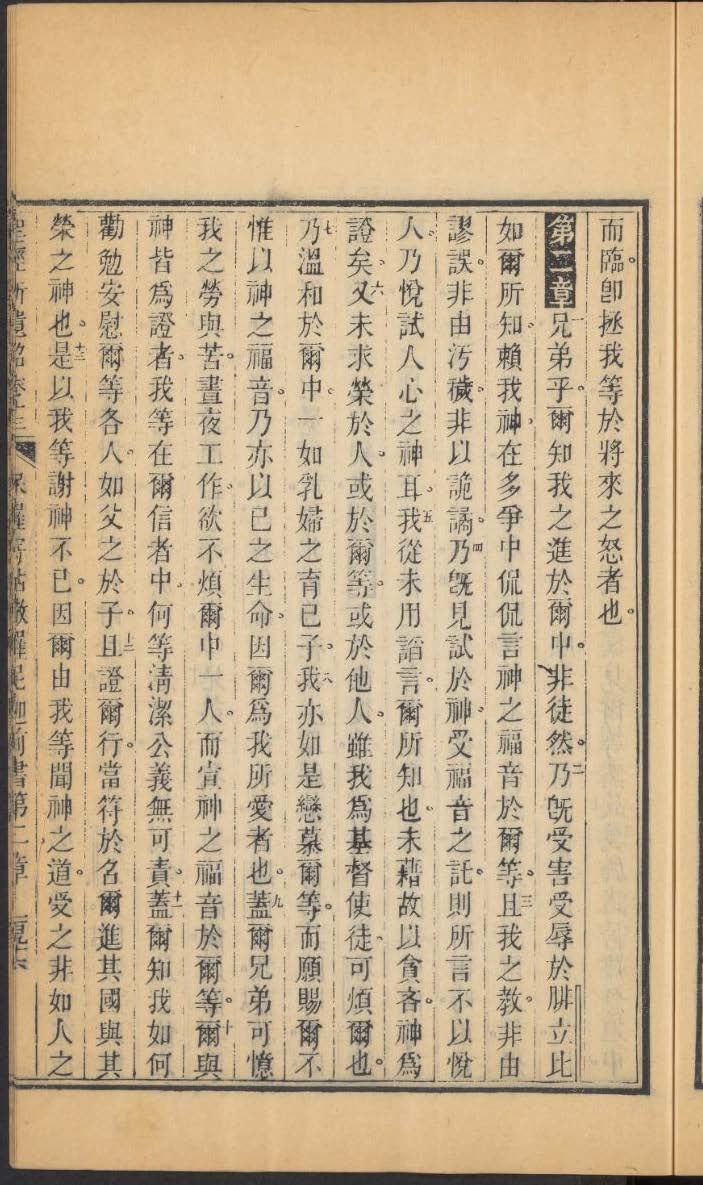 而臨。卽拯我等於將來之怒者也。
第二章一兄弟乎。爾知我之進於爾中。非徒然。二乃旣受害受辱於腓立比
如爾所知。賴我神。在多爭中侃侃言神之福音於爾等。三且我之教。非由
謬誤。非由汚穢。非以詭譎。四乃旣見試於神。受福音之託。則所言不以悅
人。乃悅試人心之神耳。五我從未用謟言。爾所知也。未藉故以貪吝。神爲
證矣。六又未求榮於人。或於爾等。或於他人。雖我爲基督使徒。可煩爾也。
七乃溫和於爾中。一如乳婦之育已子。八我亦如是戀慕爾等。而願賜爾不
惟以神之福音。乃亦以已之生命。因爾爲我所愛者也。九蓋爾兄弟可憶
我之勞與苦。晝夜工作。欲不煩爾中一人。而宣神之福音於爾等。十爾與
神皆爲證者。我等在爾信者中。何等淸潔公義無可責。十一蓋爾知我如何
勸勉安慰爾等各人。如父之於子。十二且證爾行。當符於名爾進其國與其
榮之神也。十三是以我等謝神不已。因爾由我等聞神之道。受之非如人之
前書第二章